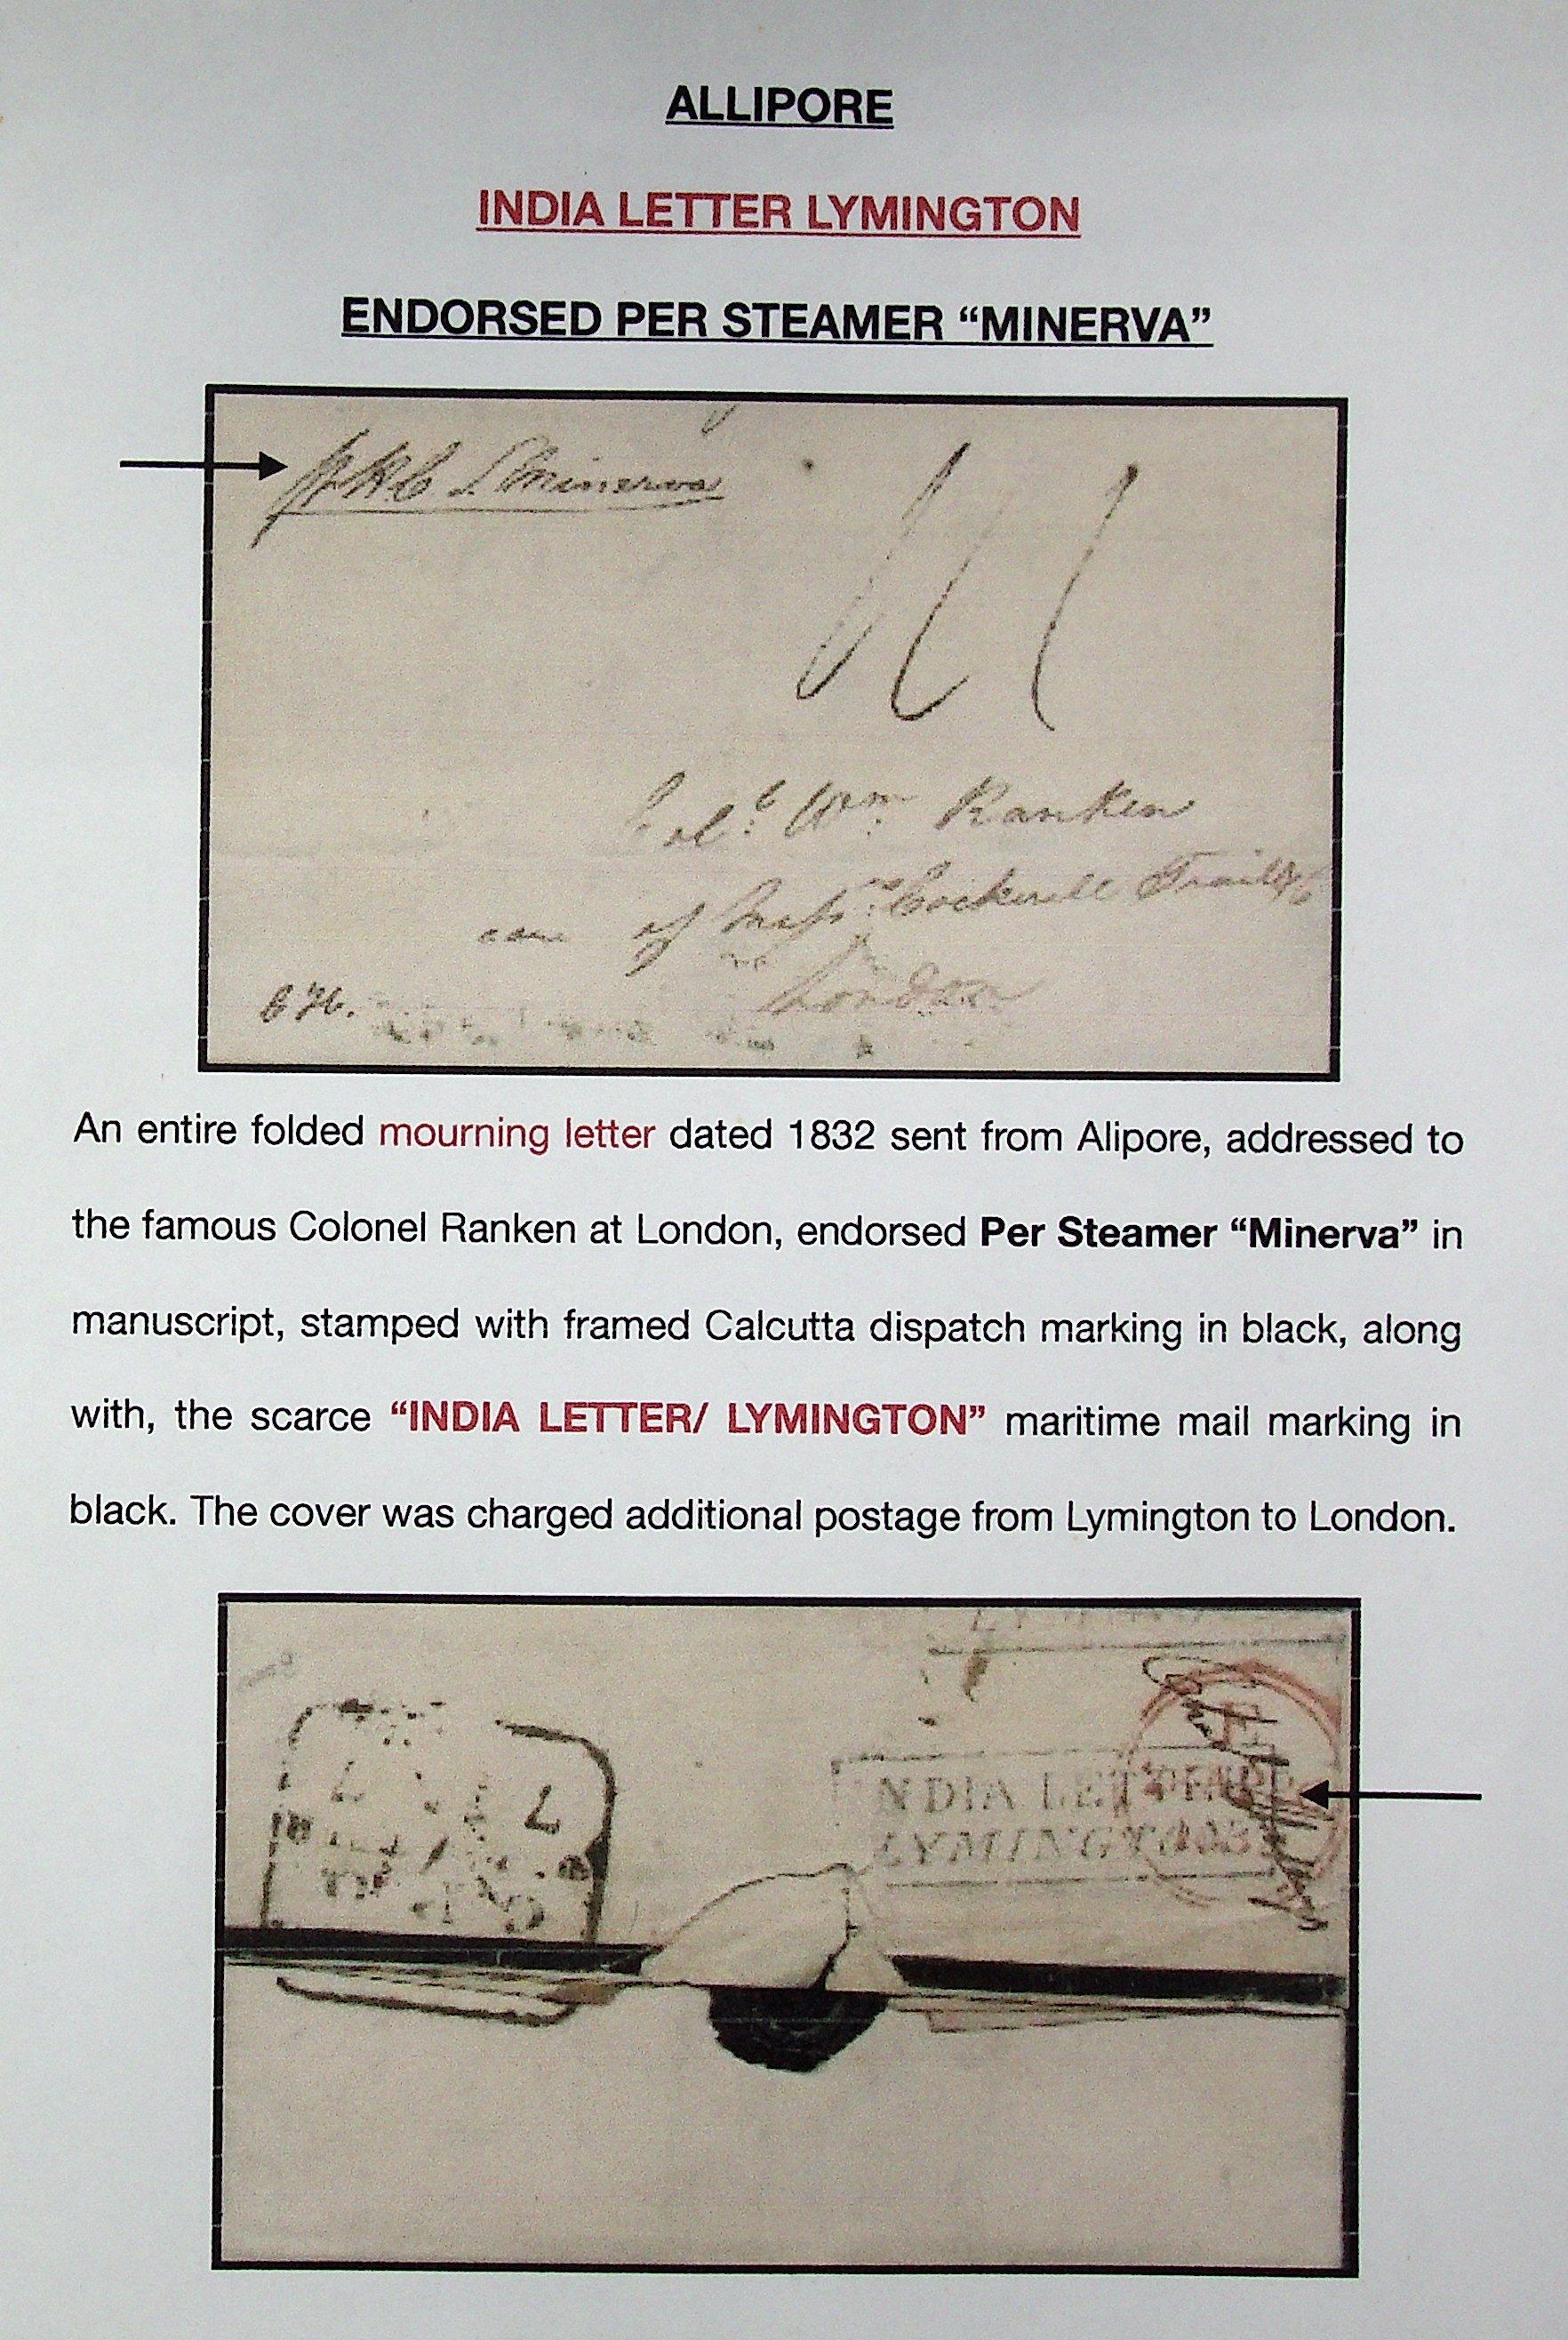 ALLIPORE
INDIA LETTER LYMINGTON
ENDORSED PER STEAMER “MINERVA”
pr H.C S. Minerva
Col.l Wm. Ranken
care of Messrs. Cockerell Traill & Co
London
An entire folded mourning letter dated 1832 sent from Alipore, addressed to
the famous Colonel Ranken at London, endorsed Per Steamer “Minerva” in
manuscript, stamped with framed Calcutta dispatch marking in black, along
with, the scarce “INDIA LETTER/ LYMINGTON” maritime mail marking in
black. The cover was charged additional postage from Lymington to London.
INDIA LETTER
LYMINGTON